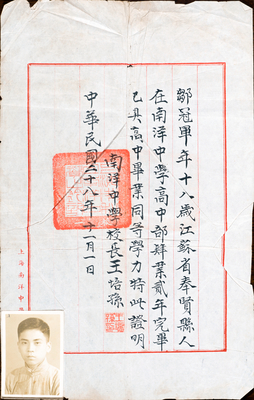 鄒冠軍年十八歲江蘇省奉賢縣人
在南洋中學高中部肄業貳年完畢
已具高中畢業同等學力特此證明
南洋中學校長王培孫
中華民國二十八年十一月一日
上海南洋中學